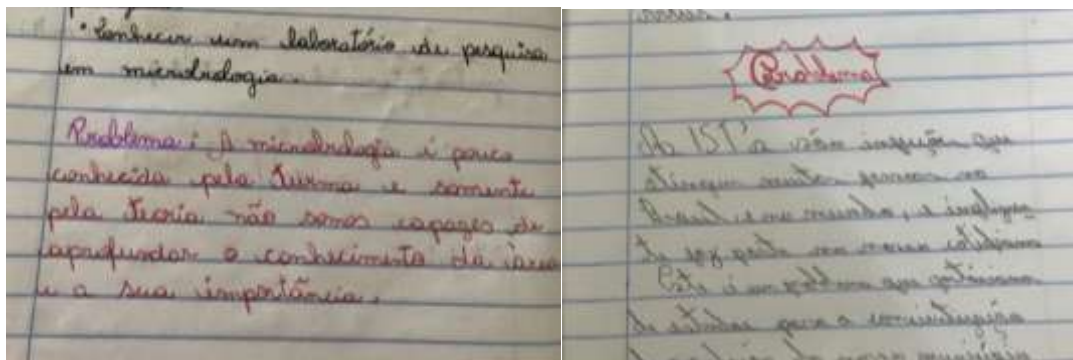 • Conhecer um laboratório de pesquisa
em microbiologia.
Problema: A microbiologia é pouco
conhecida pela turma e somente
pela teoria não somos capazes de
aprofundar o conhecimento da área
e a sua importância.
Problema
As IST's são infecções que
atingem muitas pessoas no
Brasil e no mundo, e
faz parte do nosso cotidiano
Este é um problema que gostaríamos
de estudar para a conscientização